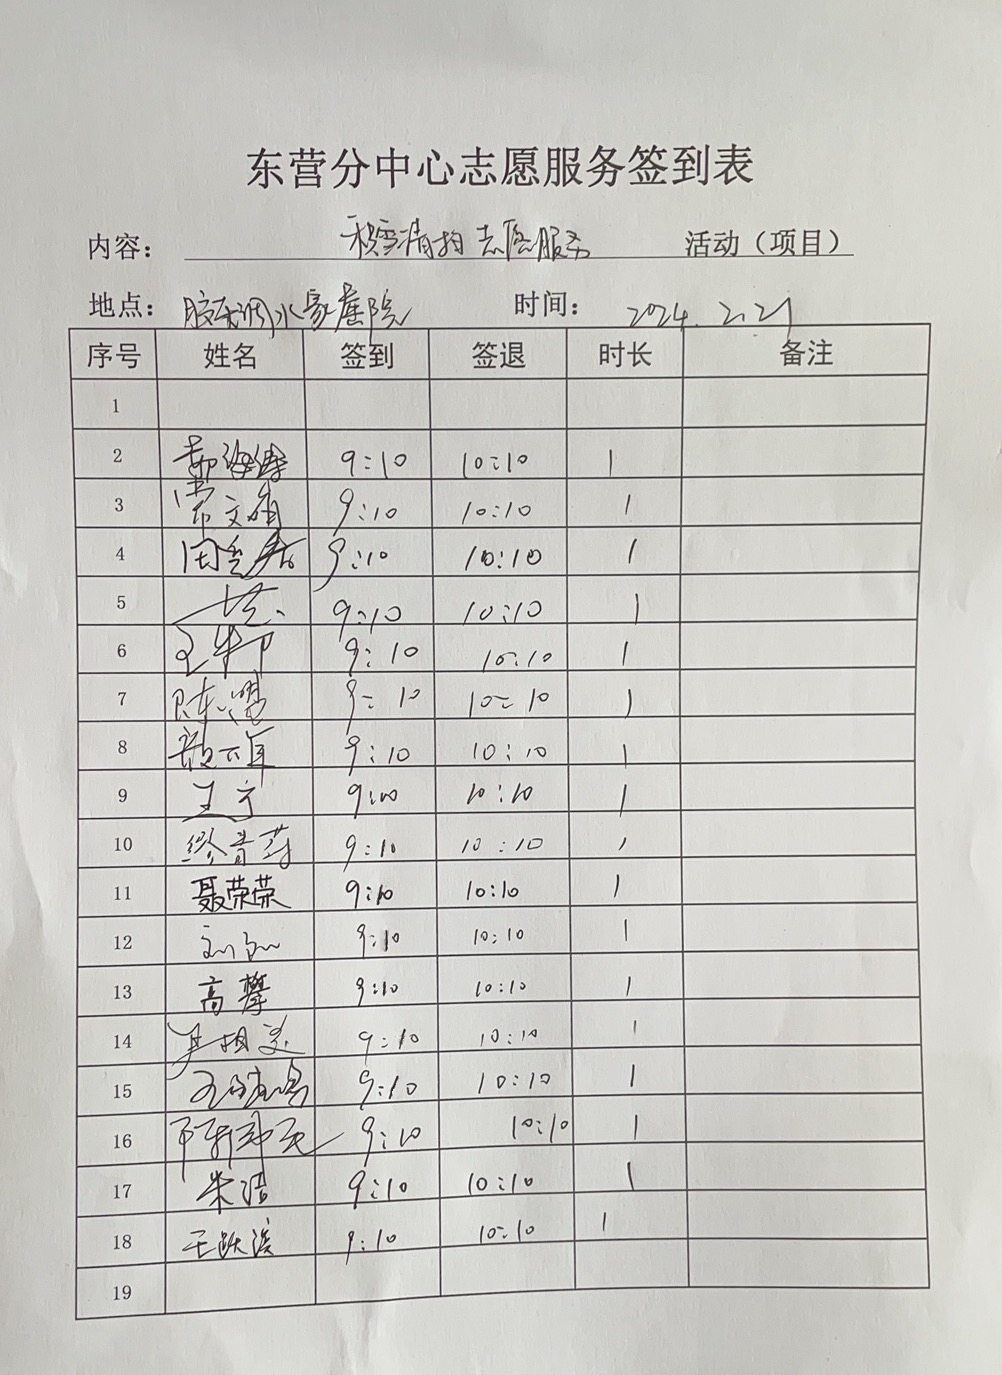 东营分中心志愿服务签到表
内容： 积雪清扫志愿服务 活动（项目）
地点： 胶东调水家属院 时间： 2024.2.21
序号 姓名 签到 签退 时长 备注
1
2 9:10 10:10 1
3 常文娟 9:10 10:10 1
4 9:10 10:10 1
5 9:10 10:10 1
6 9:10 10:10 1
7 9:10 10:10 1
8 9:10 10:10 1
9 王宁 9:10 10:10 1
10 缪青萍 9:10 10:10 1
11 聂荣荣 9:10 10:10 1
12 9:10 10:10 1
13 高攀 9:10 10:10 1
14 9:10 10:10 1
15 9:10 10:10 1
16 9:10 10:10 1
17 朱洁 9:10 10:10 1
18 王跃滨 9:10 10:10 1
19